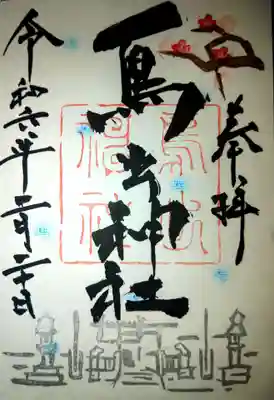 奉拝
鳥出神社
令和六年二月二十日